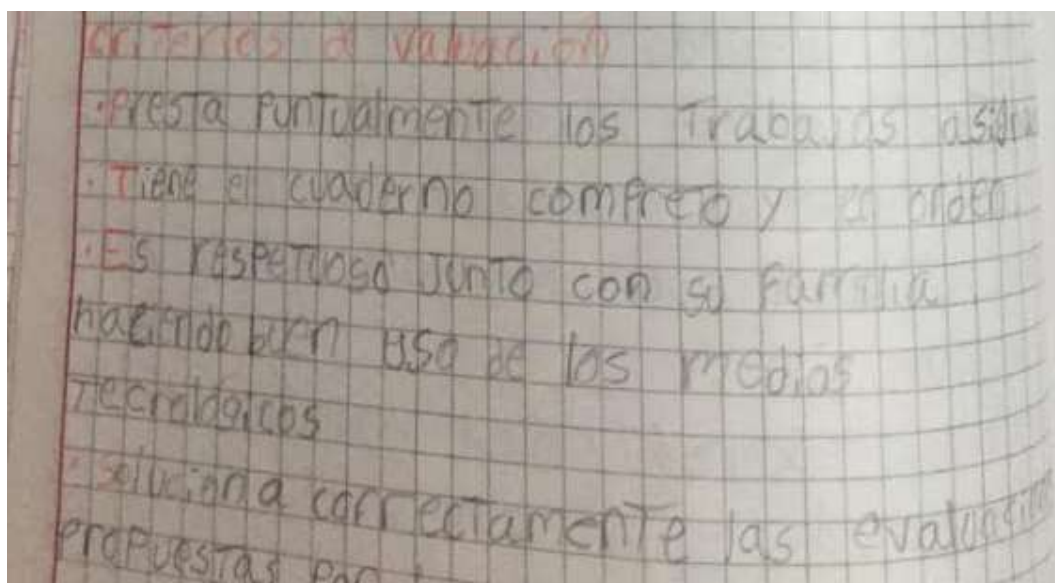 criterios d valuación
·Presta Puntualmente los Trabajos
·Tiene el cuaderno compreto y en orden
·Es respetuoso Junto con su Familia
haciendo buen uso de los medios
Tecnologicos
·soluciona correctamente las
propuestas por